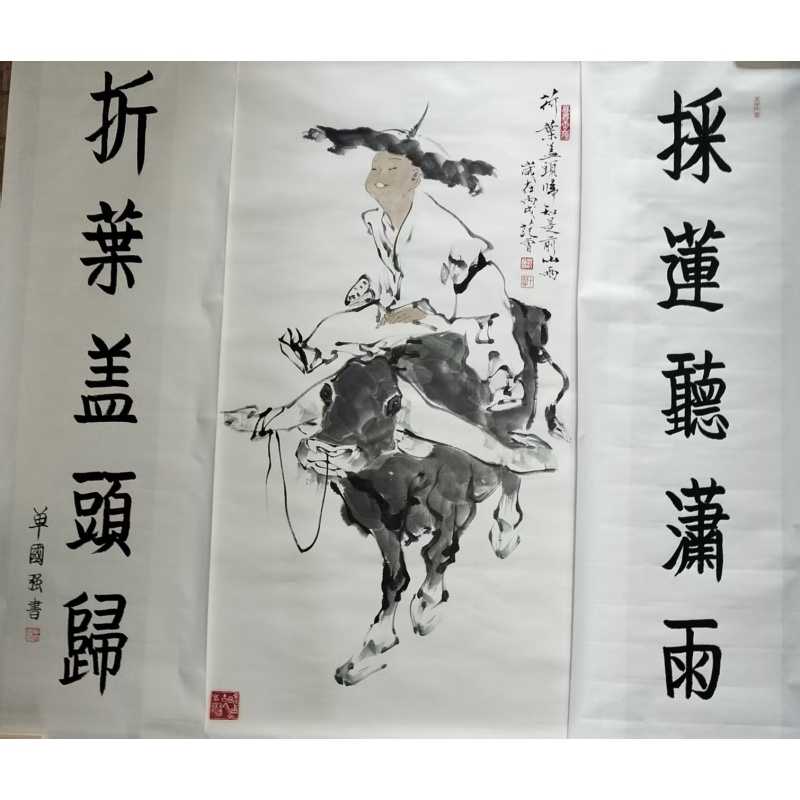 採蓮聽瀟雨
荷葉蓋頭歸知是前山雨
歲在丙戌范曾
折葉盖頭歸
单國强書